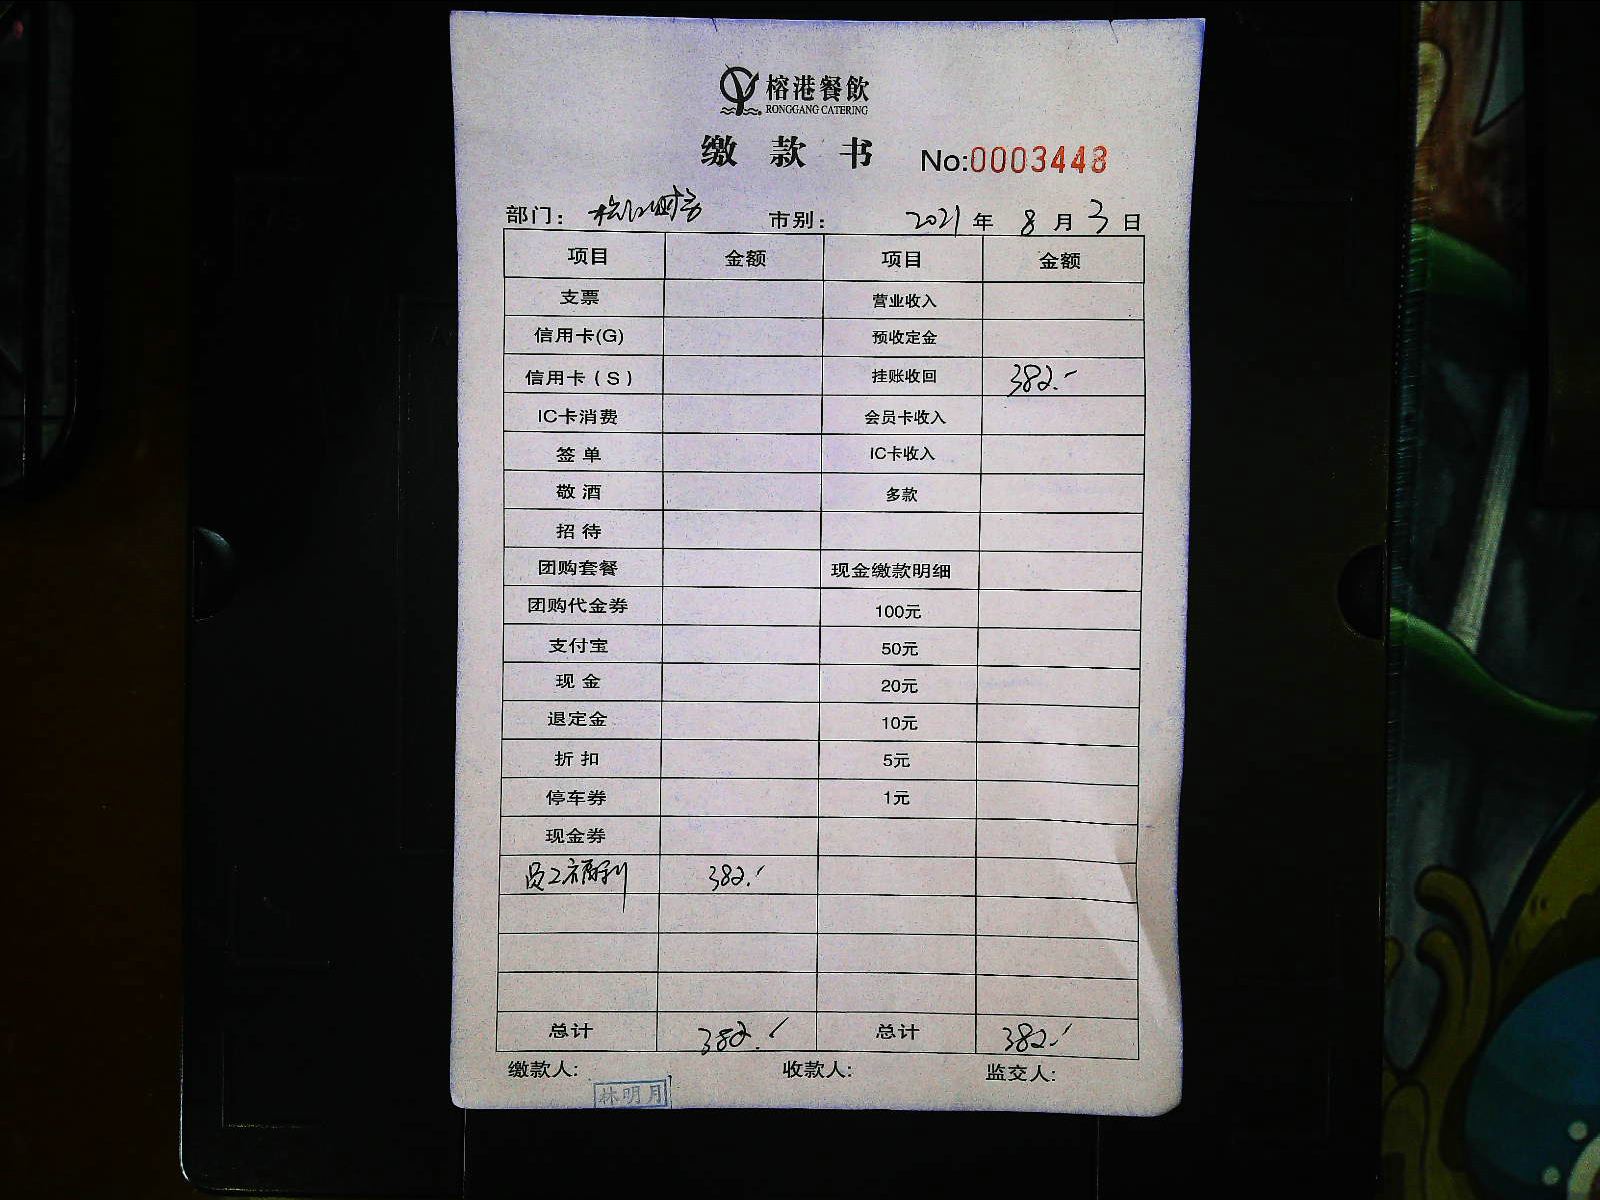 榕港餐飲
RONGGANG CATERING
缴款书 No:0003448
部门: 松江财务 市别: 2021年8月3日
项目 金额 项目 金额
支票 营业收入
信用卡(G) 预收定金
信用卡(S) 挂账收回 382.-
IC卡消费 会员卡收入
签单 IC卡收入
敬酒 多款
招待
团购套餐 现金缴款明细
团购代金券 100元
支付宝 50元
现金 20元
退定金 10元
折扣 5元
停车券 1元
现金券
员工福利 382.-
总计 382.- 总计 382.-
缴款人: 收款人: 监交人:
林明月